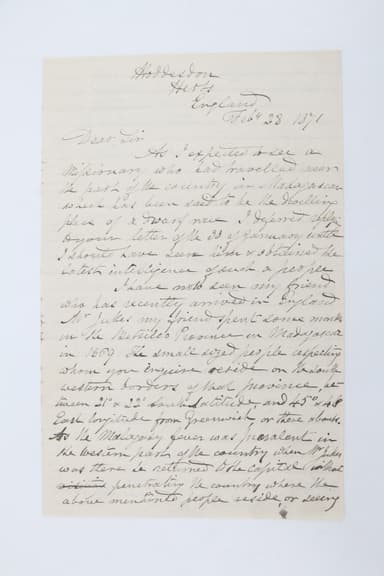 Hoddesdon
Herts
England
Feby 28. 1871
Dear Sir
As I expected to see a
Missionary who had travelled near
the part of the country in Madagascar
which has been said to be the dwelling
place of a dwarf race I deferred reply
to your letter of the 30 of January until
I should have seen him & obtained the
latest intelligence of such a people
I have now seen my friend
who has recently arrived in England
Mr Jukes my friend spent some months
in the Betsileo Province in Madagascar
in 1869 The small sized people respecting
whom you Enquire reside on the South
western borders of that province, be
tween 21° & 22° South latitude, and 45° & 48
East longitude from Greenwich or there abouts.
As the Malagasy fever was prevalent in
the western parts of the country when Mr Jukes
was there he returned to the Capital without
penetrating the country where the
above mentiond people reside, or seeing